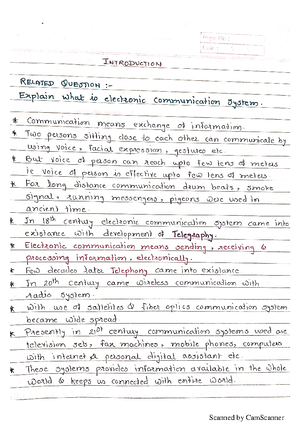 INTRODUCTION
RELATED QUESTION :-
Explain what is electronic communication system.
* Communication means exchange of information.
* Two persons sitting close to each other can communicate by
using voice, facial expression, gestures etc.
* But voice of person can reach upto few tens of meters
ie voice of person is effective upto few tens of meters
* For long distance communication drum beats, smoke
signal, running messengers, pigeons were used in
ancient time.
* In 18th century electronic communication system came into
existance with development of Telegraphy.
* Electronic communication means sending, receiving &
processing information, electronically.
* Few decades later Telephony came into existance
* In 20th century came wireless communication with
radio system.
* With use of satellites & fiber optics communication system
became wide spread
* Presently in 21st century communication systems used are
television sets, fax machines, mobile phones, computers
with internet & personal digital assistant etc.
* These systems provides information available in the whole
world & keeps us connected with entire world.
Scanned by CamScanner